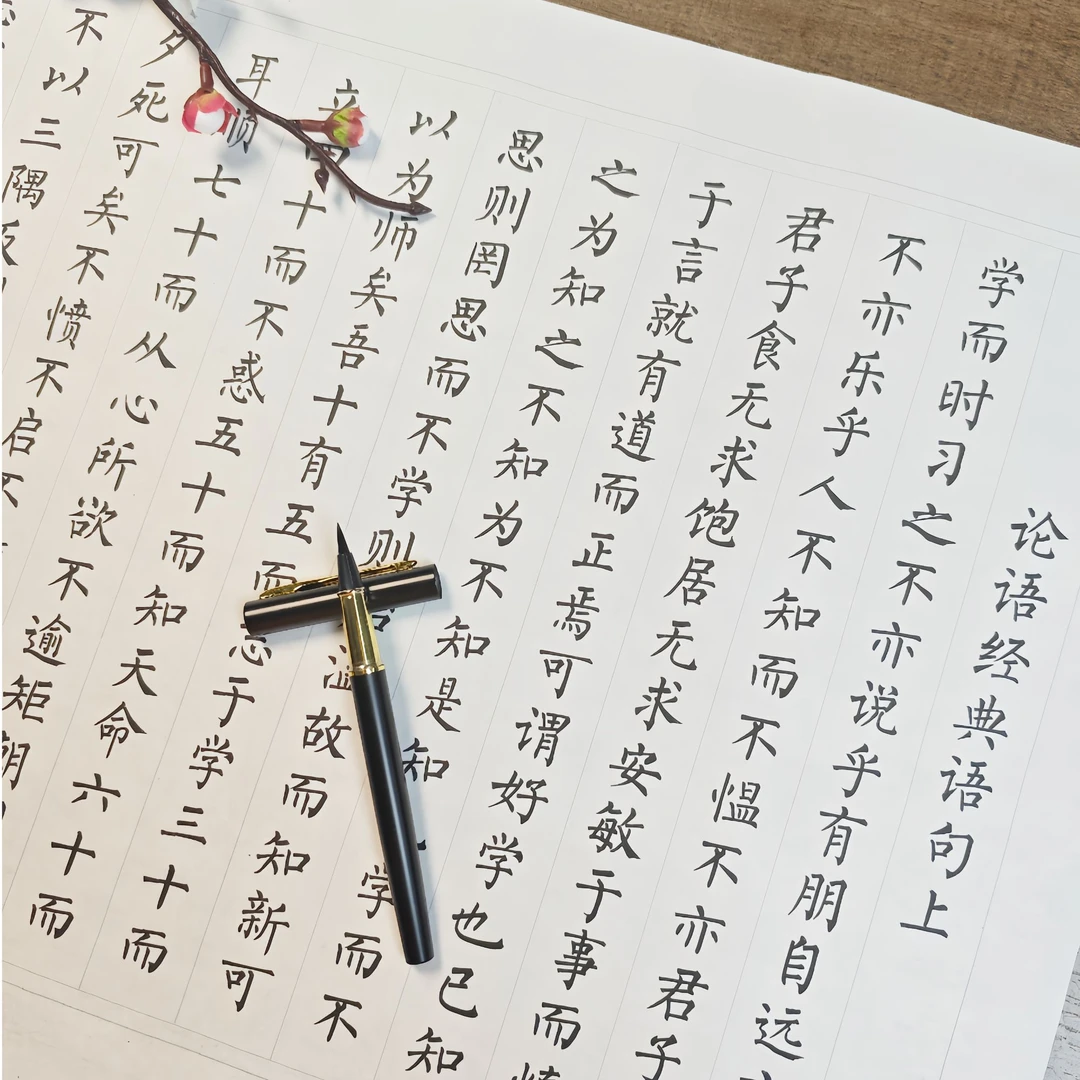 论语经典语句上
学而时习之不亦说乎有朋自远
不亦乐乎人不知而不愠不亦君子
君子食无求饱居无求安敏于事而
于言就有道而正焉可谓好学也已知
之为知之不知为不知是知学而不
思则罔思而不学则温故而知新可
以为师矣吾十有五而志于学三十而
立四十而不惑五十而知天命六十而
耳顺七十而从心所欲不逾矩朝
夕死可矣不愤不启不
不以三隅反